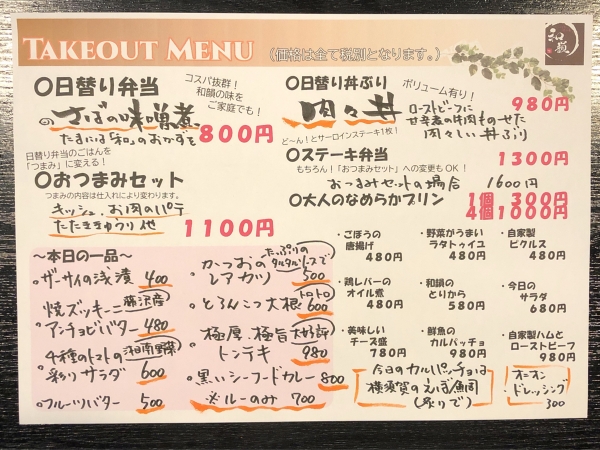 TAKEOUT MENU (価格は全て税別となります。)
和韻
〇日替り弁当
コスパ抜群!
和韻の味を
ご家庭でも!
のさばの味噌煮
たまには「和」のおかずを
800円
日替り弁当のごはんを
「つまみ」に変える!
〇おつまみセット
つまみの内容は仕入れにより変わります。
キッシュ、お肉のパテ
たたききゅうり 他
1100円
〇日替り丼ぶり
ボリューム有り!
肉々丼
ローストビーフに
甘辛煮の牛肉ものせた
肉々しい丼ぶり
980円
ど〜ん!とサーロインステーキ1枚!
〇ステーキ弁当
1300円
もちろん!「おつまみセット」への変更もOK!
おつまみセットの場合 1600円
〇大人のなめらかプリン
1個 300円
4個1000円
〜本日の一品〜
・ザーサイの浅漬 400
・焼ズッキーニ 藤沢産
アンチョビバター 480
・4種のトマトの
彩りサラダ 600
・フルーツバター 500
・かつおの たっぷりのタルタルソースで
レアカツ 500
・とろんこつ大根 トロトロ 600
・極厚、極旨 大好評
トンテキ 980
・黒いシーフードカレー 800
※ルーのみ 700
・ごぼうの
唐揚げ
480円
・野菜がうまい
ラタトゥイユ
480円
・自家製
ピクルス
480円
・鶏レバーの
オイル煮
480円
・和韻の
とりから
580円
・今日の
サラダ
680円
・美味しい
チーズ盛
780円
・鮮魚の
カルパッチョ
980円
・自家製ハムと
ローストビーフ
980円
今日のカルパッチョは
横須賀のえぼ鯛
(炙りで)
オニオン
・ドレッシング
300